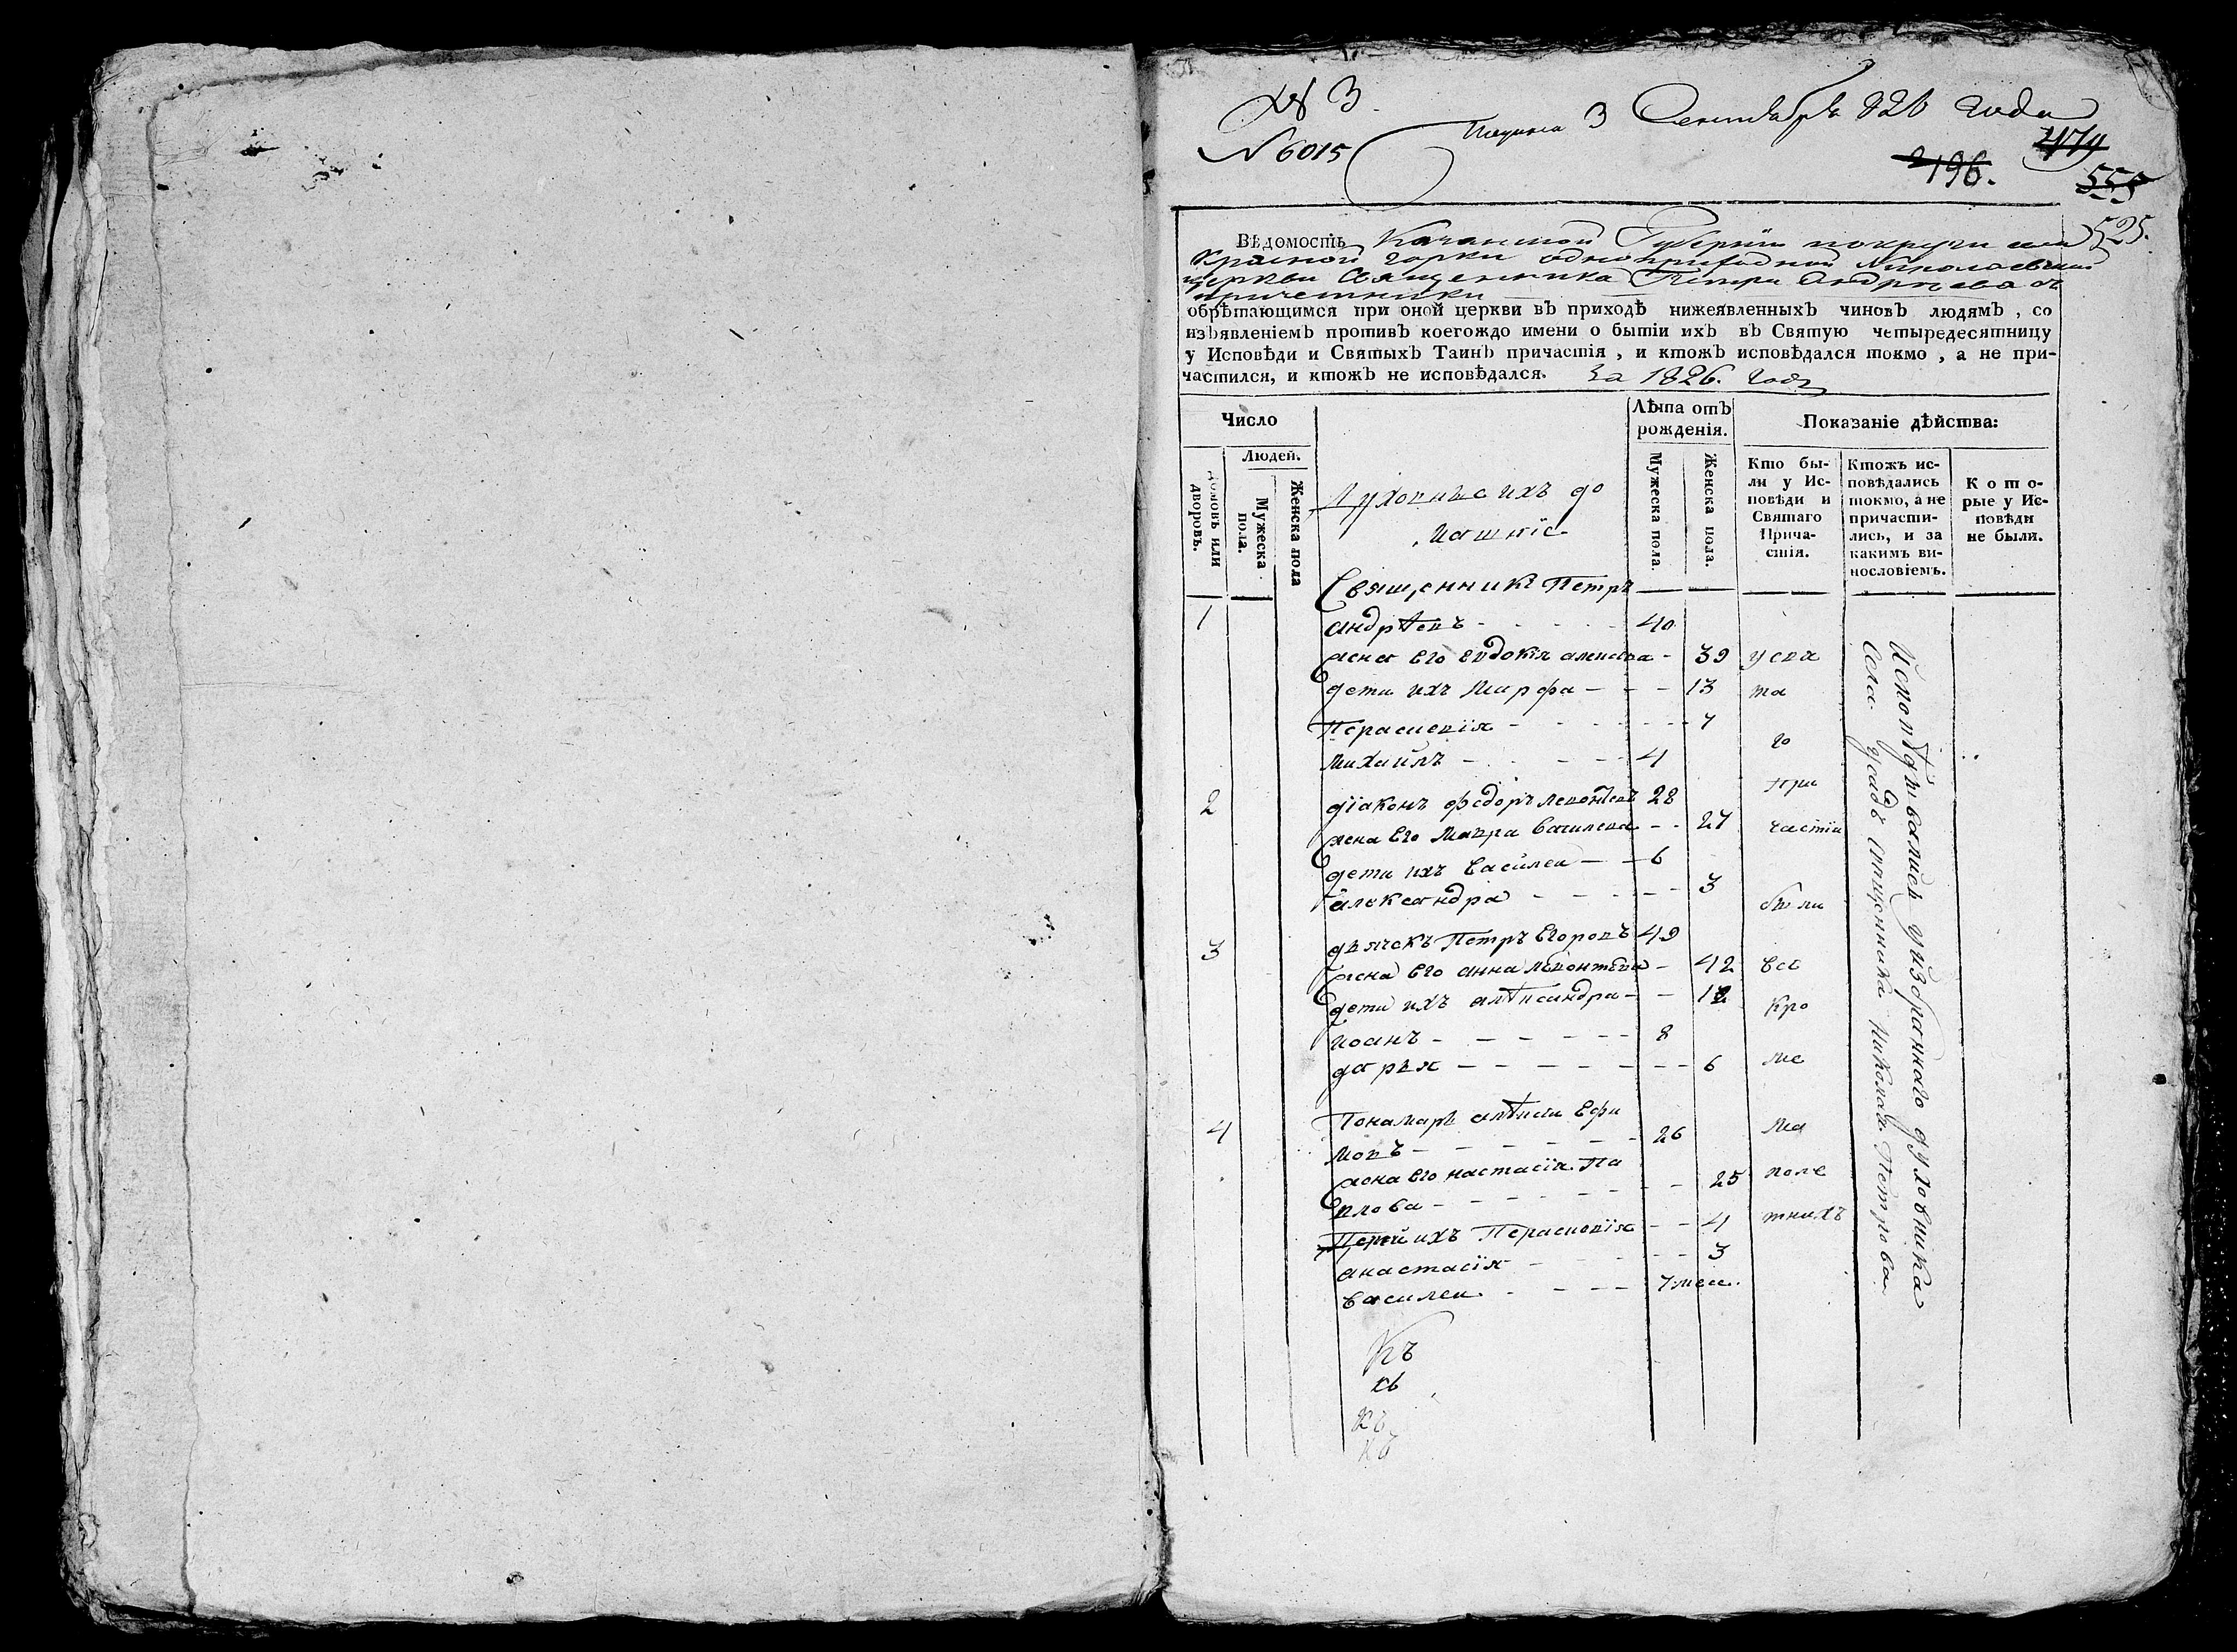 № 3.
№ 6015
3 Сентября 826 года
479
196.
555
525.
ВѢдомость Казанской Губерніи села
Красной горки одноприходной Николаевской
церкви Священника Петра Андреева съ
причетники
обрѣтающимся при оной церкви въ приходѣ нижеявленныхъ чиновъ людямъ, со
изъявленіемъ противъ коегождо имени о бытіи ихъ въ Святую четыредесятницу
у Исповѣди и Святыхъ Таинъ причастія, и ктожъ исповѣдался токмо, а не при-
частился, и ктожъ не исповѣдался. За 1826. Годъ
Число
Людей.
Домовъ или дворовъ.
Мужеска пола.
Женска пола
Духовные ихъ до
машніе
Лѣта отъ рожденія.
Мужеска пола.
Женска пола.
Показаніе дѣйства:
Кто бы-
ли у Ис-
повѣди и
Святаго
Прича-
стія.
Ктожъ ис-
повѣдались
токмо, а не
причасти-
лись, и за
какимъ ви-
нословіемъ.
Кото-
рые у Ис-
повѣди
не были.
Священникъ Петръ
1 андрѣевъ - 40
жена Его Евдокія алексѣева - 39 у свя
дети ихъ Марфа - - - 13 та
Параскевія - 7
го
Михайлъ - 4
при
2 діаконъ Федоръ Левонтьевъ 28
жена Его Мавра Василева - - 27 частія
дети ихъ Василеи - - 6
александра - 3
были
3 дьячекъ Петръ Егоровъ 49
жена Его анна левонтьева - 42 всѣ
дети ихъ алѣксандра - - 12
кро
иоанъ - 8
дарья - 6 ме
4 Пономарь алѣксѣи Ефи
мовъ - 26 ма
жена Его настасія Па
влова - 25 поле
дети ихъ Параскевія - - 4 тнихъ
анастасія - 3
василеи - 7 месе.
Исповѣдывались у избраннаго духовника
Села Священника Николая Петрова
Къ
къ
къ
къ